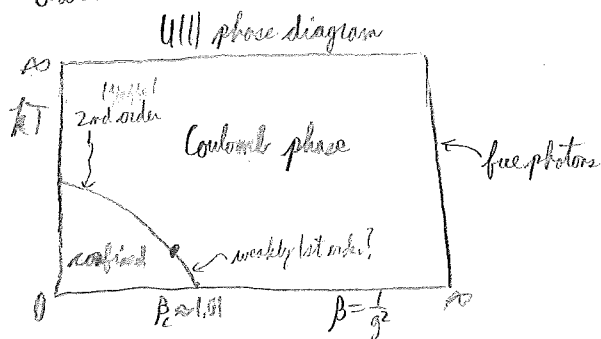 U(1) phase diagram
∞
kT
2nd order
Coulomb phase
free photons
confined
weakly 1st order?
0
βc ≈ 1.01
β = 1/g²
∞